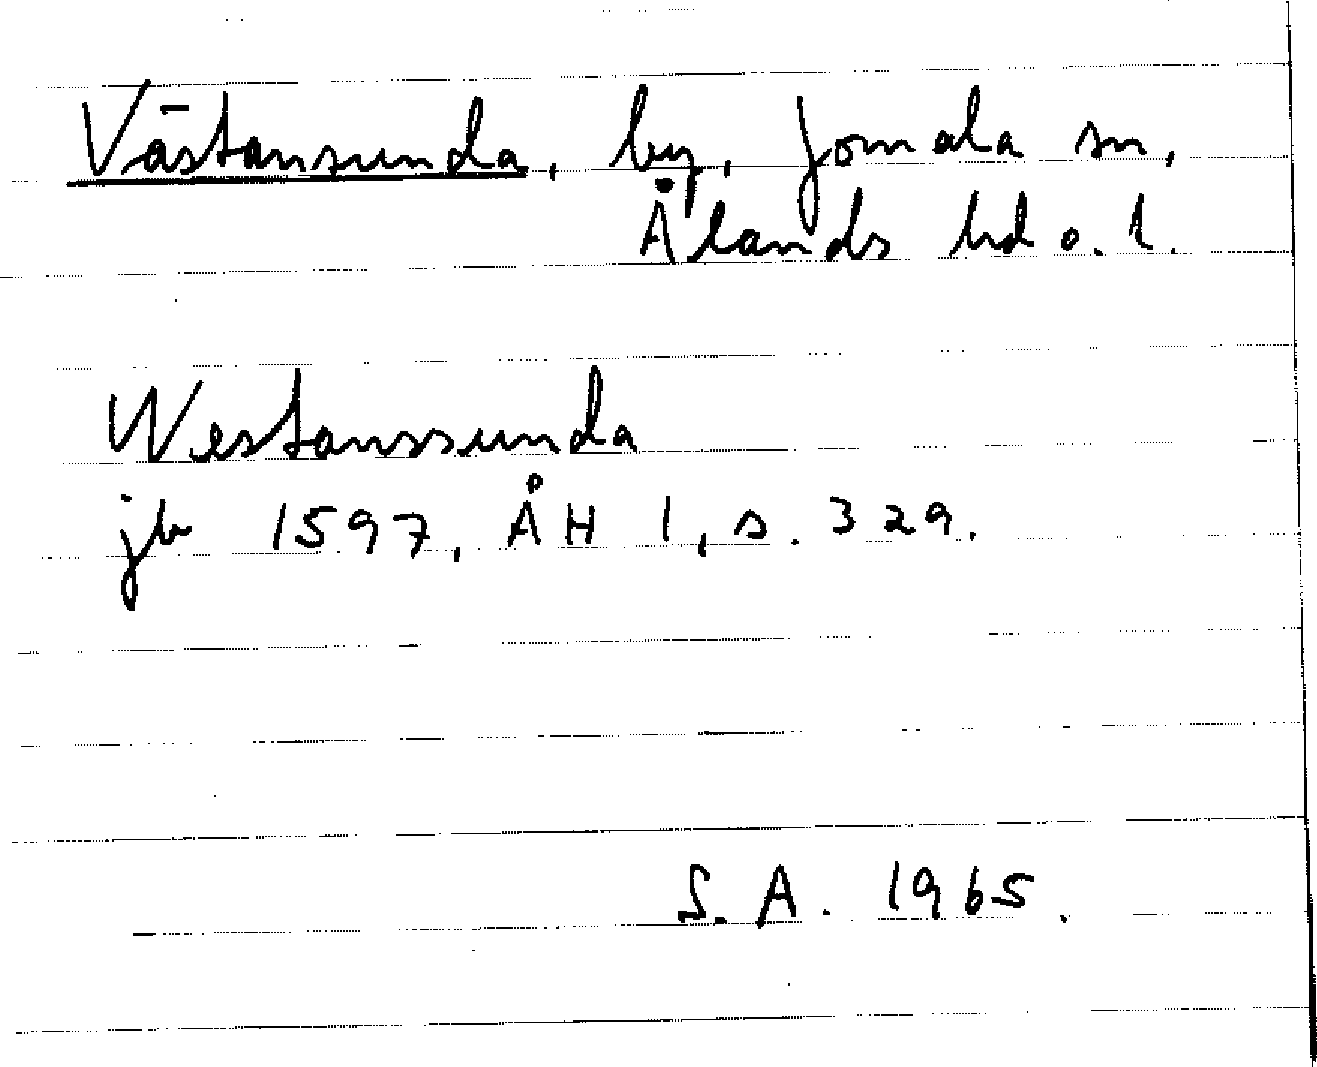 Västansunda, by, Jomala sn,
Ålands hd o. l.
Westanssunda
jb 1597, ÅH 1, s. 329.
S. A. 1965.